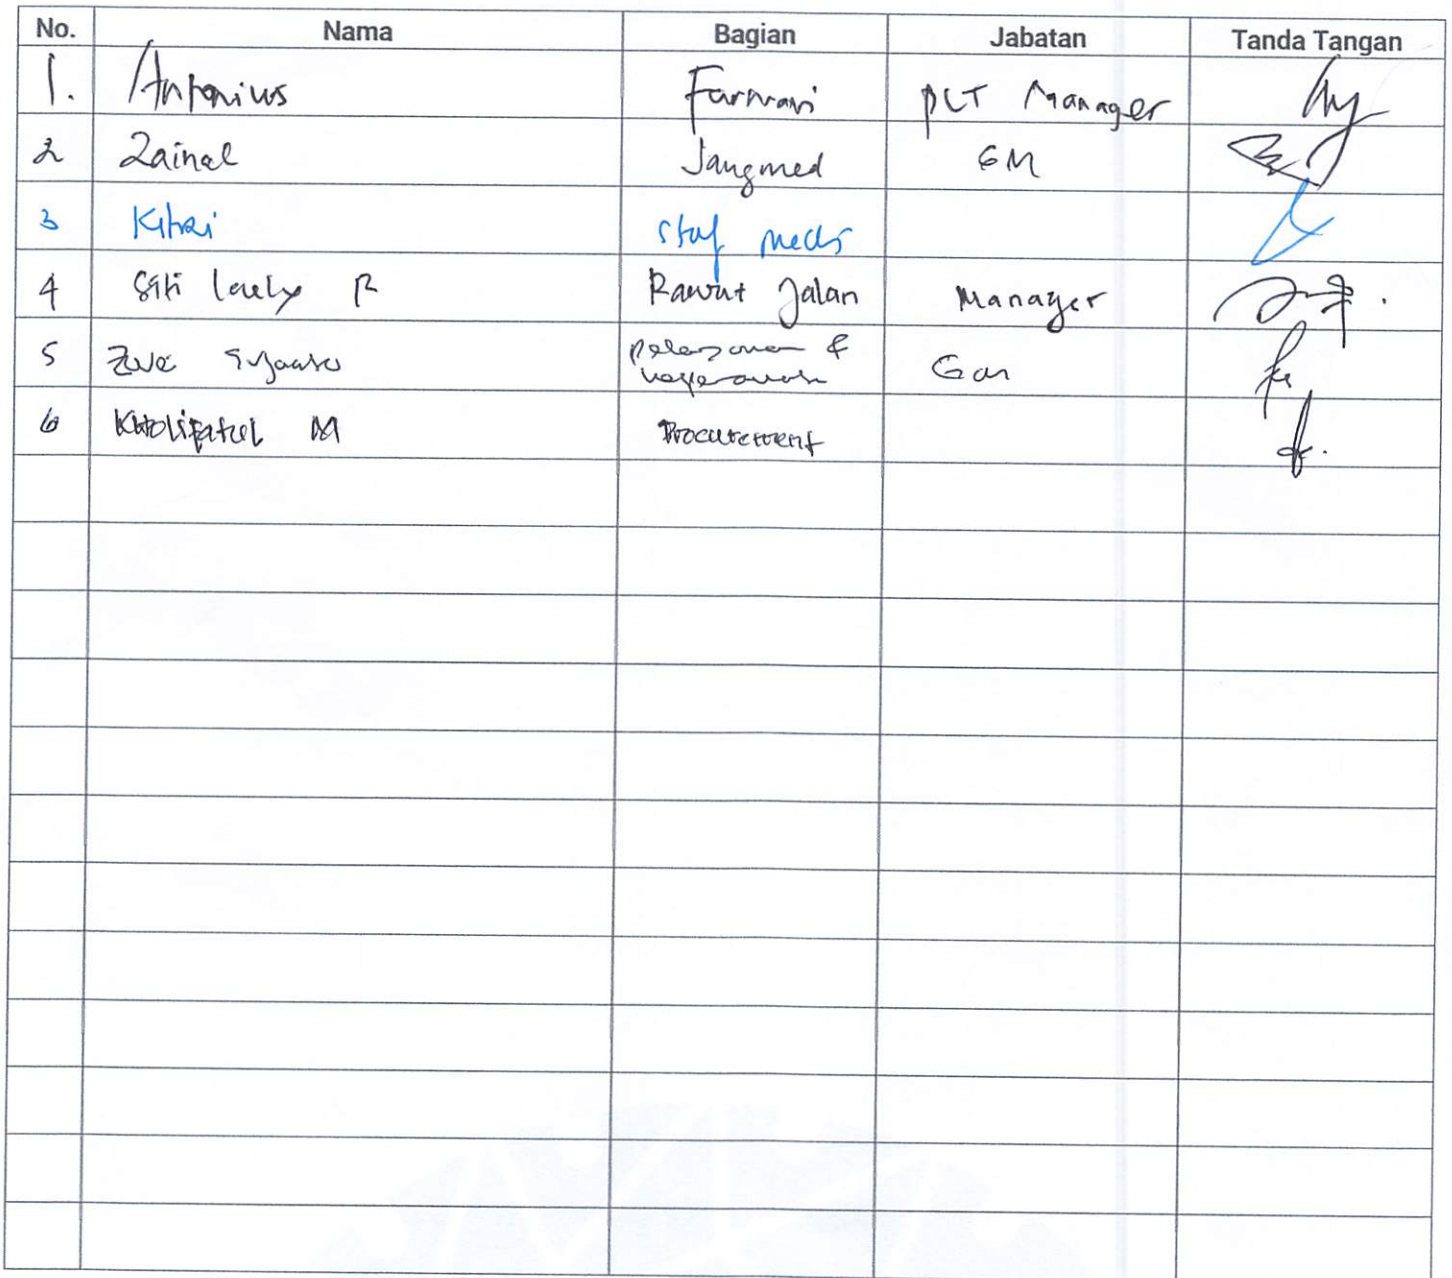 No. Nama Bagian Jabatan Tanda Tangan
1. Antonius Farmasi PLT Manager
2 Zainal Jangmed GM
3 Kitri Staf medis
4 Siti Laely R Rawat Jalan Manager
5 pelayanan &
keperawatan GM
6 Kholifatul M Procurement